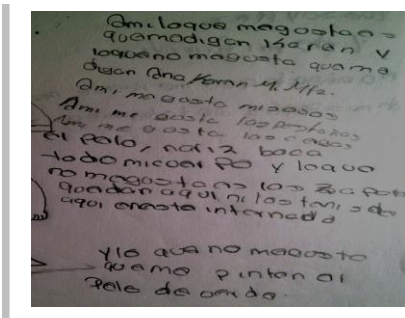 Ami loque megosta es
quemedigan Karen y
loqueno megusta queme
digan Ana Karen M. Mtz.
Ami, megosta misojos
Ami me gosta las pestañas
Ami me gosta las cejas
el pelo, nariz boca
todo micuerpo y loque
nomegosta es los zapatos
quedan aqui ni los tenis de
aqui eneste internado
yle que no megosto
queme pinten el
pelo de verde.